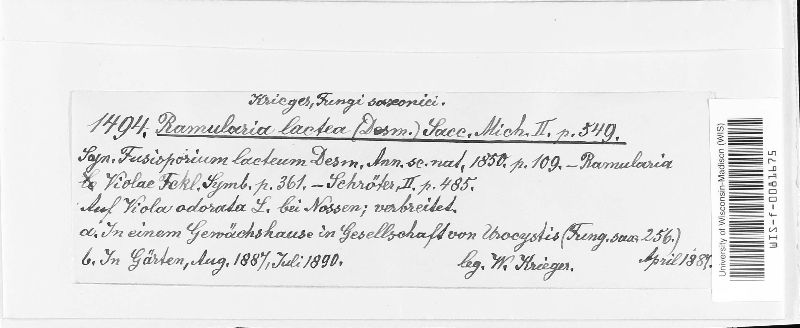 Krieger, Fungi saxonici.
1494. Ramularia lactea (Desm.) Sacc. Mich. II. p. 549.
Syn. Fusisporium lacteum Desm. Ann. sc. nat. 1850. p. 109. – Ramularia
Violae Fckl. Symb. p. 361. – Schröter, II. p. 485.
Auf Viola odorata L. bei Nossen; verbreitet.
a. In einem Gewächshause in Gesellschaft von Urocystis (Fung. sax. 256.)
April 1887.
b. In Gärten, Aug. 1887, Juli 1890. leg. W. Krieger.
University of Wisconsin-Madison (WIS)
WIS-f-0081675